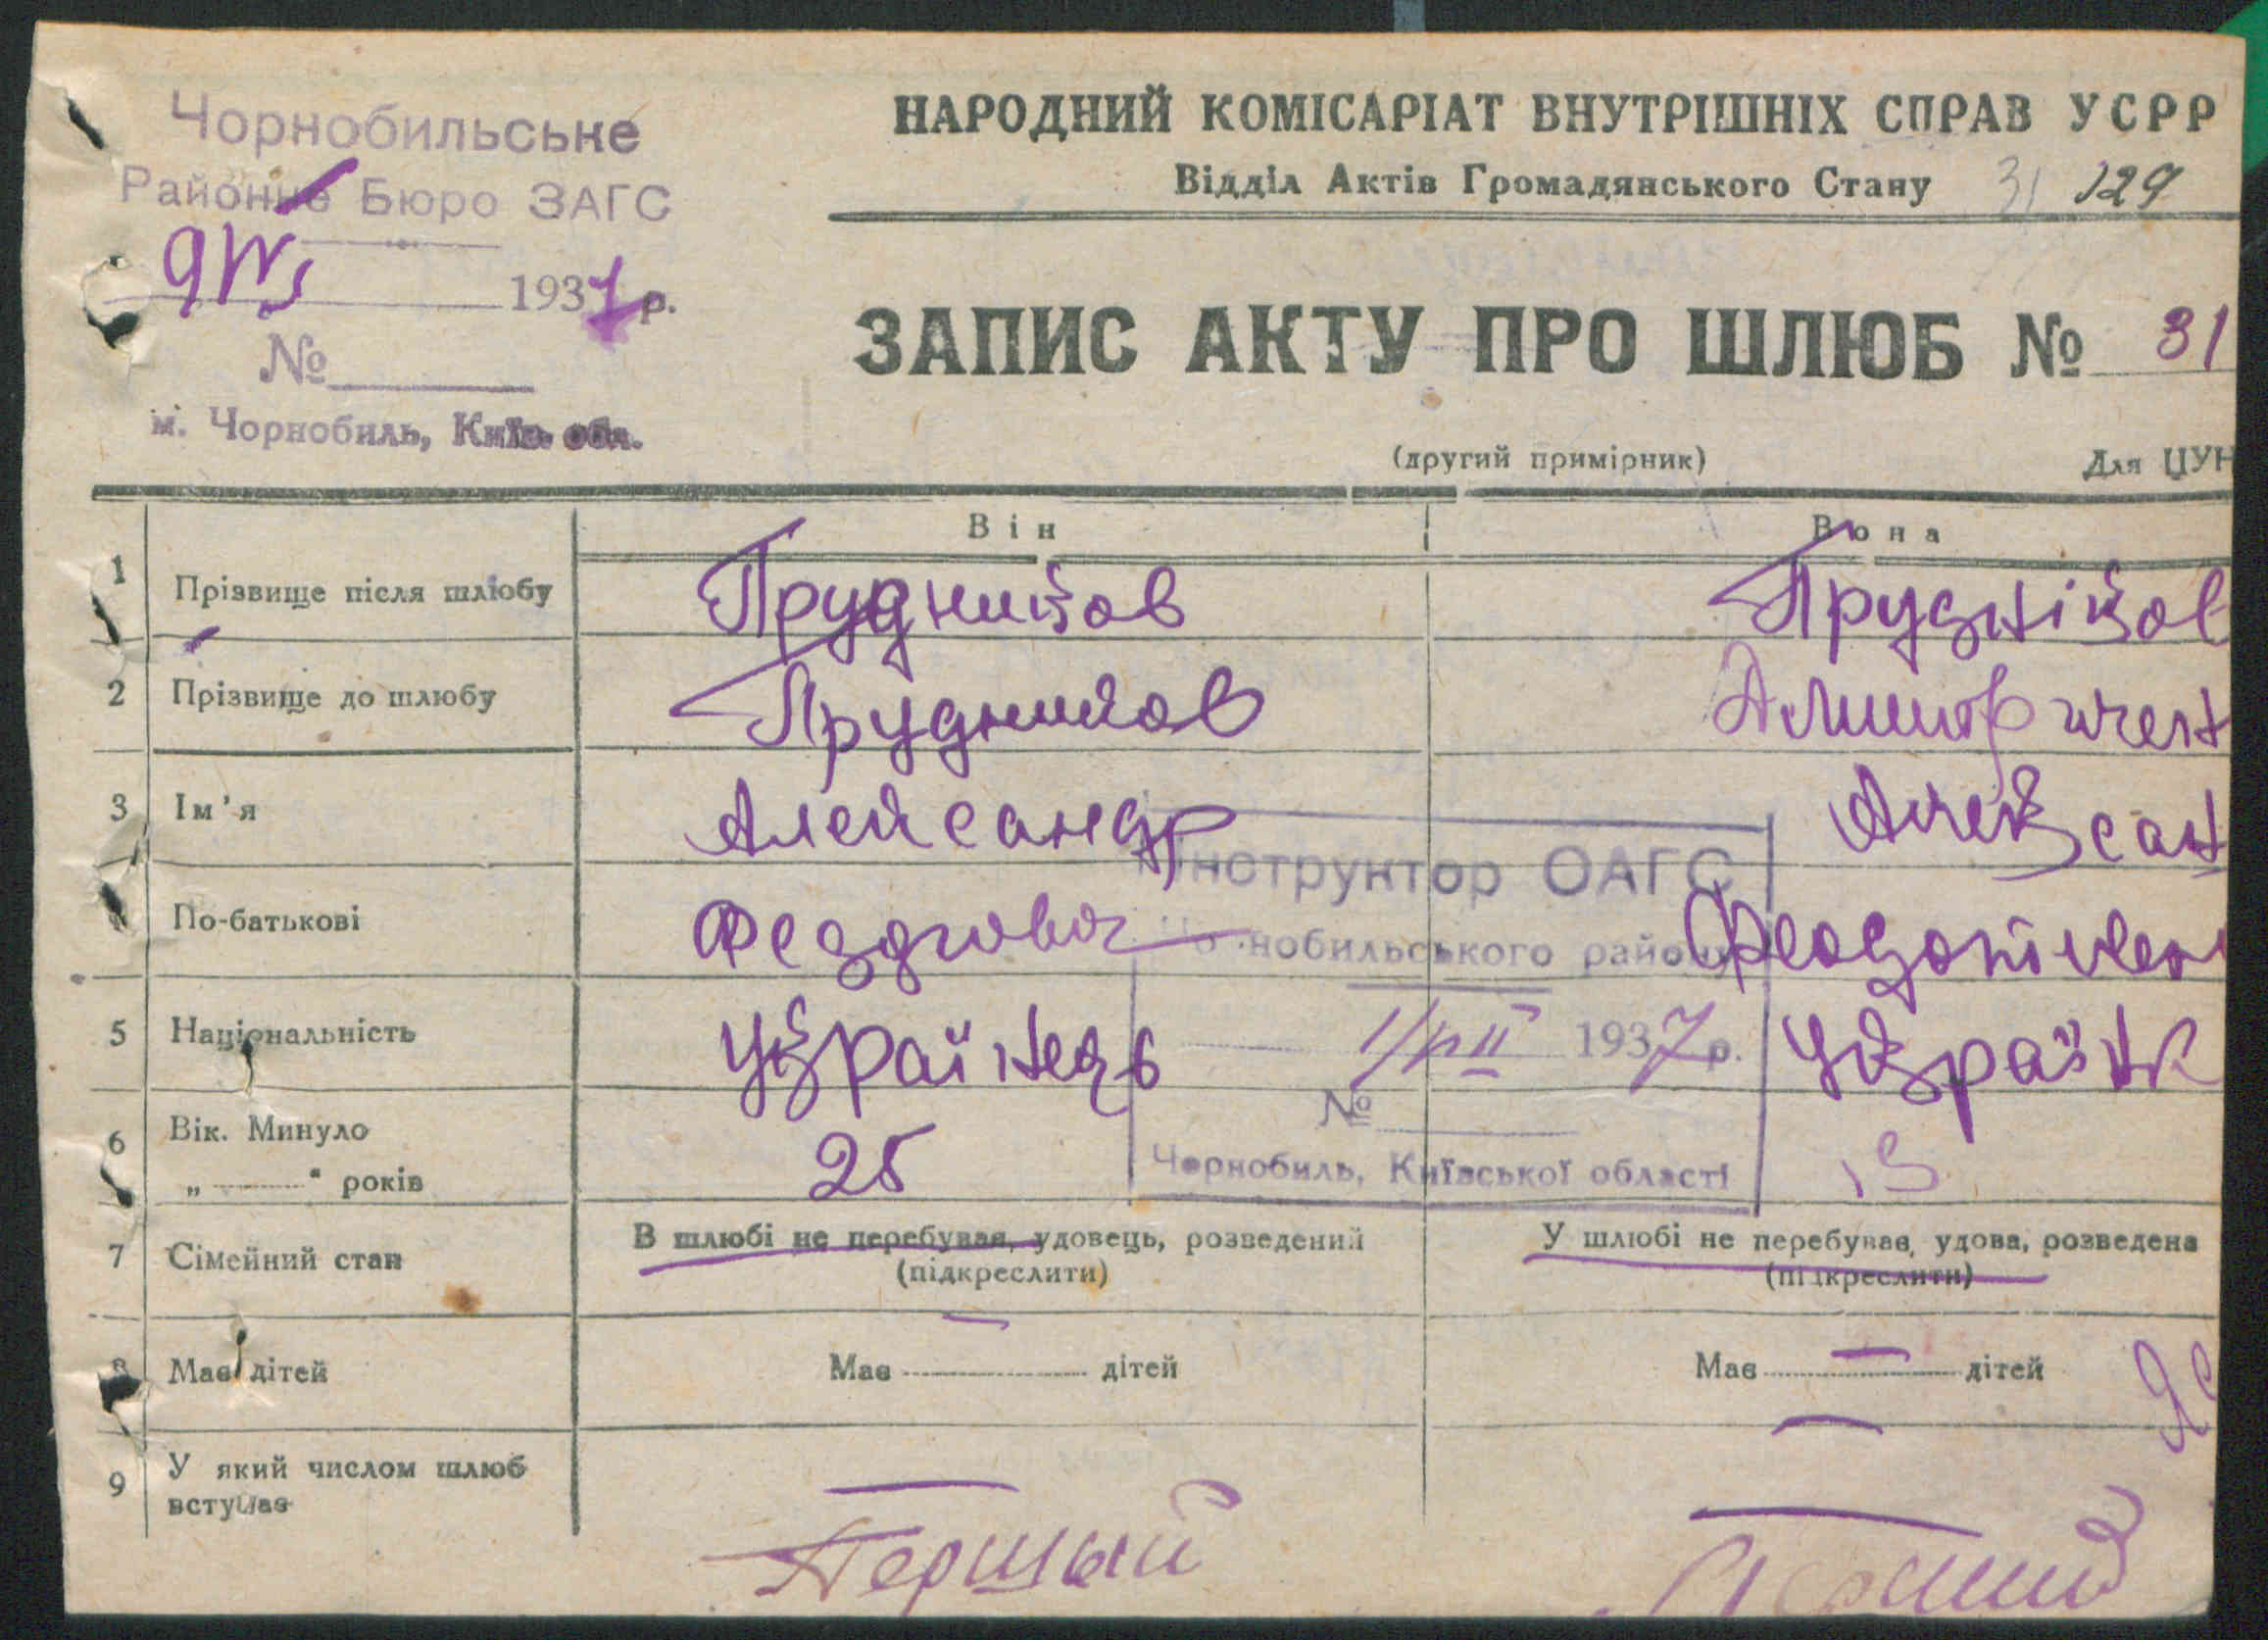 Чорнобильське
Районне Бюро ЗАГС
1937 р.
№
м. Чорнобиль, Київ. обл.
НАРОДНИЙ КОМІСАРІАТ ВНУТРІШНІХ СПРАВ УСРР
Відділ Актів Громадянського Стану 31 129
ЗАПИС АКТУ ПРО ШЛЮБ № 31
(другий примірник) Для ЦУН
Він Вона
1 Прізвище після шлюбу Прудников Прудніков
2 Прізвище до шлюбу Прудников
3 Ім'я Александр Алексан
Інструктор ОАГС
4 По-батькові
Чорнобильського району
5 Національність Українець Українк
1937 р.
№
6 Вік. Минуло
„ " років 25
Чорнобиль, Київської області
7 Сімейний стан В шлюбі не перебував, удовець, розведений У шлюбі не перебував, удова, розведена
(підкреслити) (підкреслити)
8 Має дітей Має дітей Має дітей
9 У який числом шлюб
вступає
Першый Перший